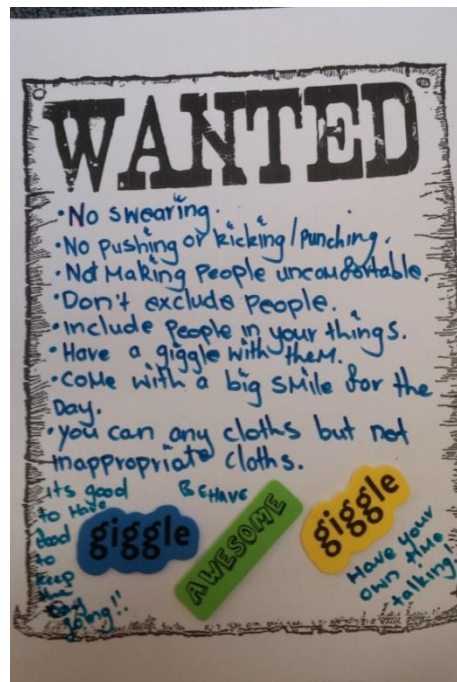 WANTED
•No swearing.
•No pushing or kicking/punching.
•Not Making People uncomfortable.
•Don't exclude people.
•include people in your things.
•Have a giggle with them.
•come with a big smile for the
Day.
•you can any cloths but not
inappropriate cloths.
its good
to Have
food
to
keep
the
going!!
BEHAVE
giggle
AWESOME
giggle
Have your
own time
talking!